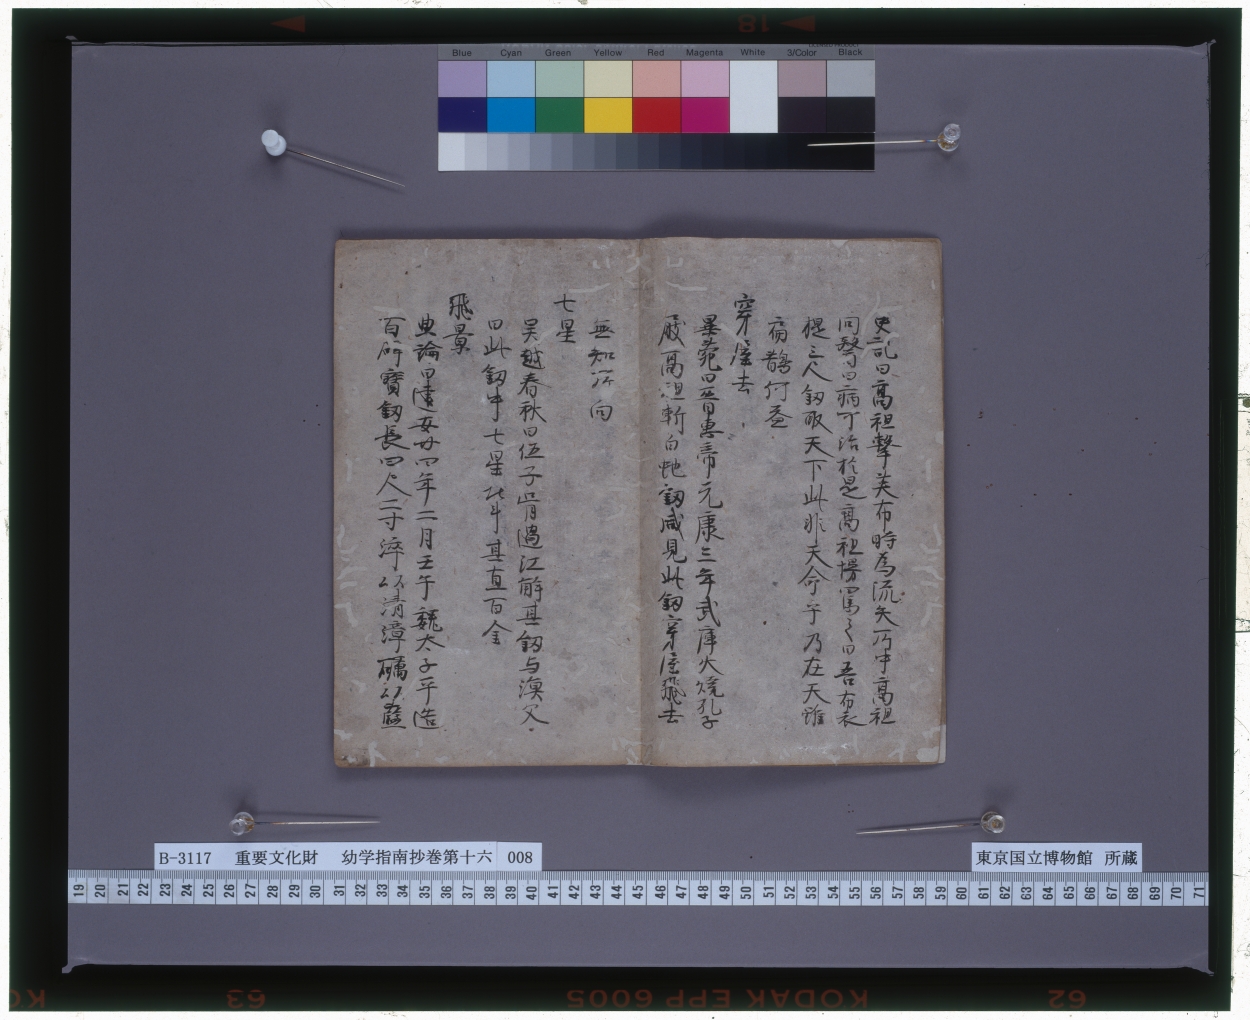 史記曰高祖擊英布時為流矢所中高祖
問醫曰病可治於是高祖慢罵之曰吾布衣
提三尺釼取天下此非天命乎乃在天雖
扁鵲何益
穿屋去
異苑曰晋惠帝元康三年武庫火燒孔子
履高祖斬白虵釼咸見此釼穿屋飛去
無知所向
七星
吴越春秋曰伍子胥過江解其釼与漁父
曰此釼中七星北斗其直百金
飛景
典論曰建安廿四年二月壬午魏太子丕造
百辟寶釼長四尺二寸淬以清漳礪以䃴
Blue Cyan Green Yellow Red Magenta White 3/Color Black
B-3117 重要文化財 幼学指南抄巻第十六 008
東京国立博物館 所蔵
19 20 21 22 23 24 25 26 27 28 29 30 31 32 33 34 35 36 37 38 39 40 41 42 43 44 45 46 47 48 49 50 51 52 53 54 55 56 57 58 59 60 61 62 63 64 65 66 67 68 69 70 71
18
63
KODAK EPP 6005
62